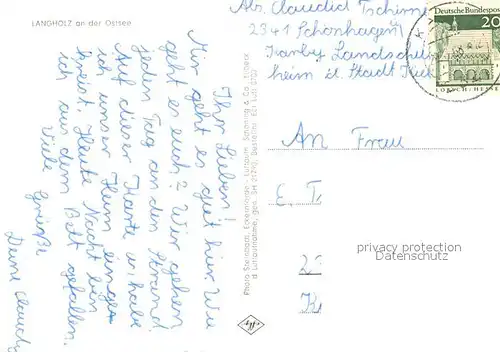 LANGHOLZ an der Ostsee
Abs. Claudia Tschirn
2341 Schönhagen
Kamby Landschul
heim d. Stadt Kiel
Deutsche Bundespost
20
LORSCH/HESSEN
Ihr Lieben!
Mir geht es gut hier. Wie
geht es euch? Wir gehen
jeden Tag an den Strand.
Auf dieser Karte habe
ich unser Heim einge-
kreist. Heute Nacht bin
ich aus dem Bett gefallen.
Viele Grüße
Deine Claudi
Photo Steinstadt, Eckernförde - Luftaufn. Schöning & Co., Lübeck
An Frau
E. T
2
K
privacy protection
Datenschutz